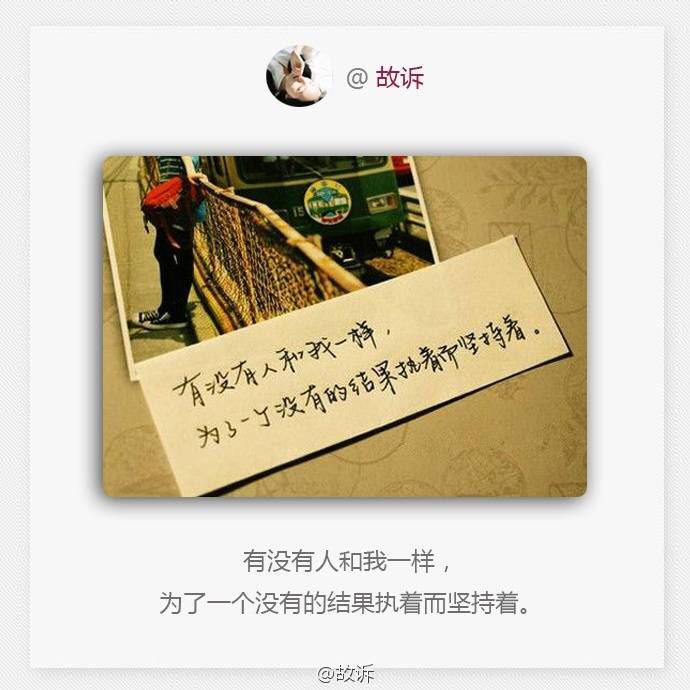 @ 故诉
15
有没有人和我一样，
为了一个没有的结果执着而坚持着。
有没有人和我一样，
为了一个没有的结果执着而坚持着。
@故诉